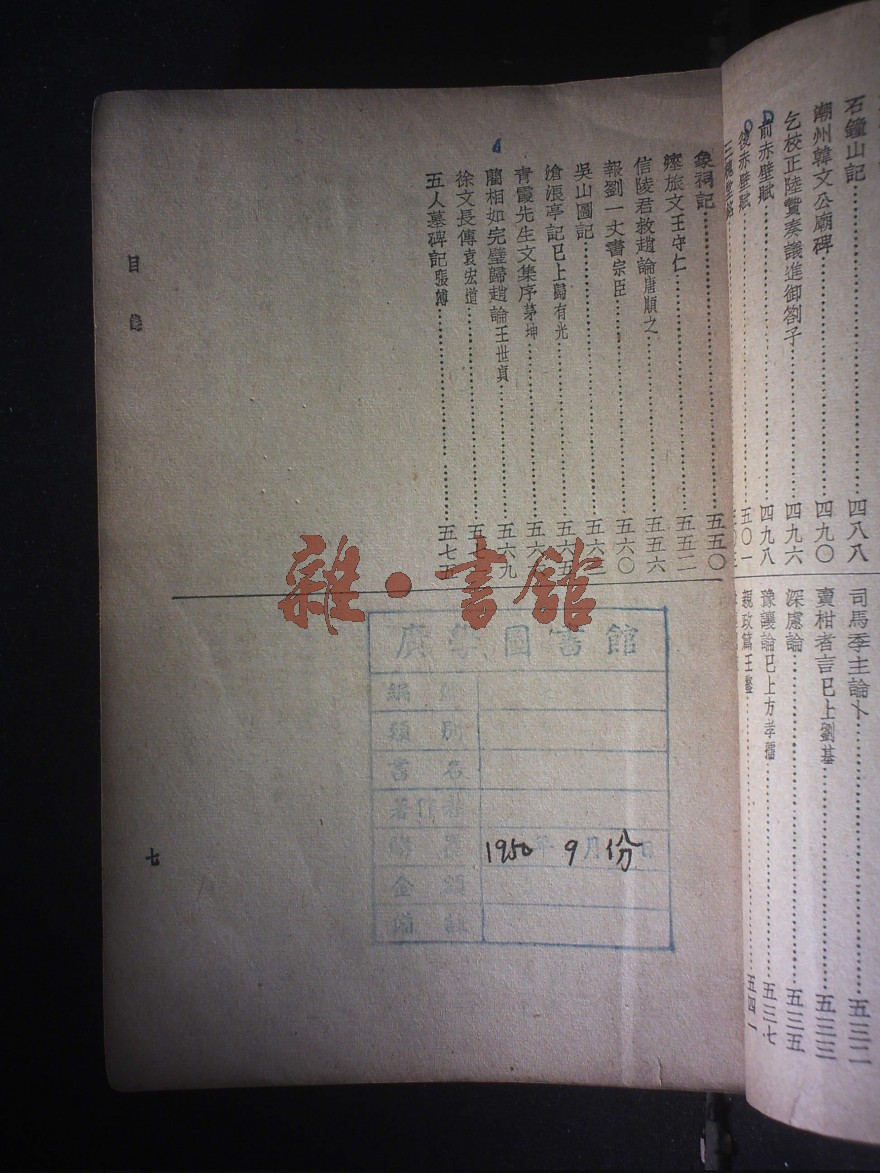 石鐘山記 四八八
潮州韓文公廟碑 四九〇
乞校正陸贄奏議進御劄子 四九六
前赤壁賦 四九八
後赤壁賦 五〇一
司馬季主論卜 五三二
賣柑者言已上劉基 五三三
深慮論 五三五
豫讓論已上方孝孺 五三七
親政篇王鏊 五四一
象祠記 五五〇
瘞旅文王守仁 五五二
信陵君救趙論唐順之 五五六
報劉一丈書宗臣 五六〇
吳山圖記 五六
滄浪亭記已上歸有光 五六五
青霞先生文集序茅坤 五六
藺相如完璧歸趙論王世貞 五六九
徐文長傳袁宏道 五七
五人墓碑記張溥 五七五
目錄
七
雜·書館
廣學圖書館
編號
類別
書名
著作者
購置 1950年9月份日
金額
備註